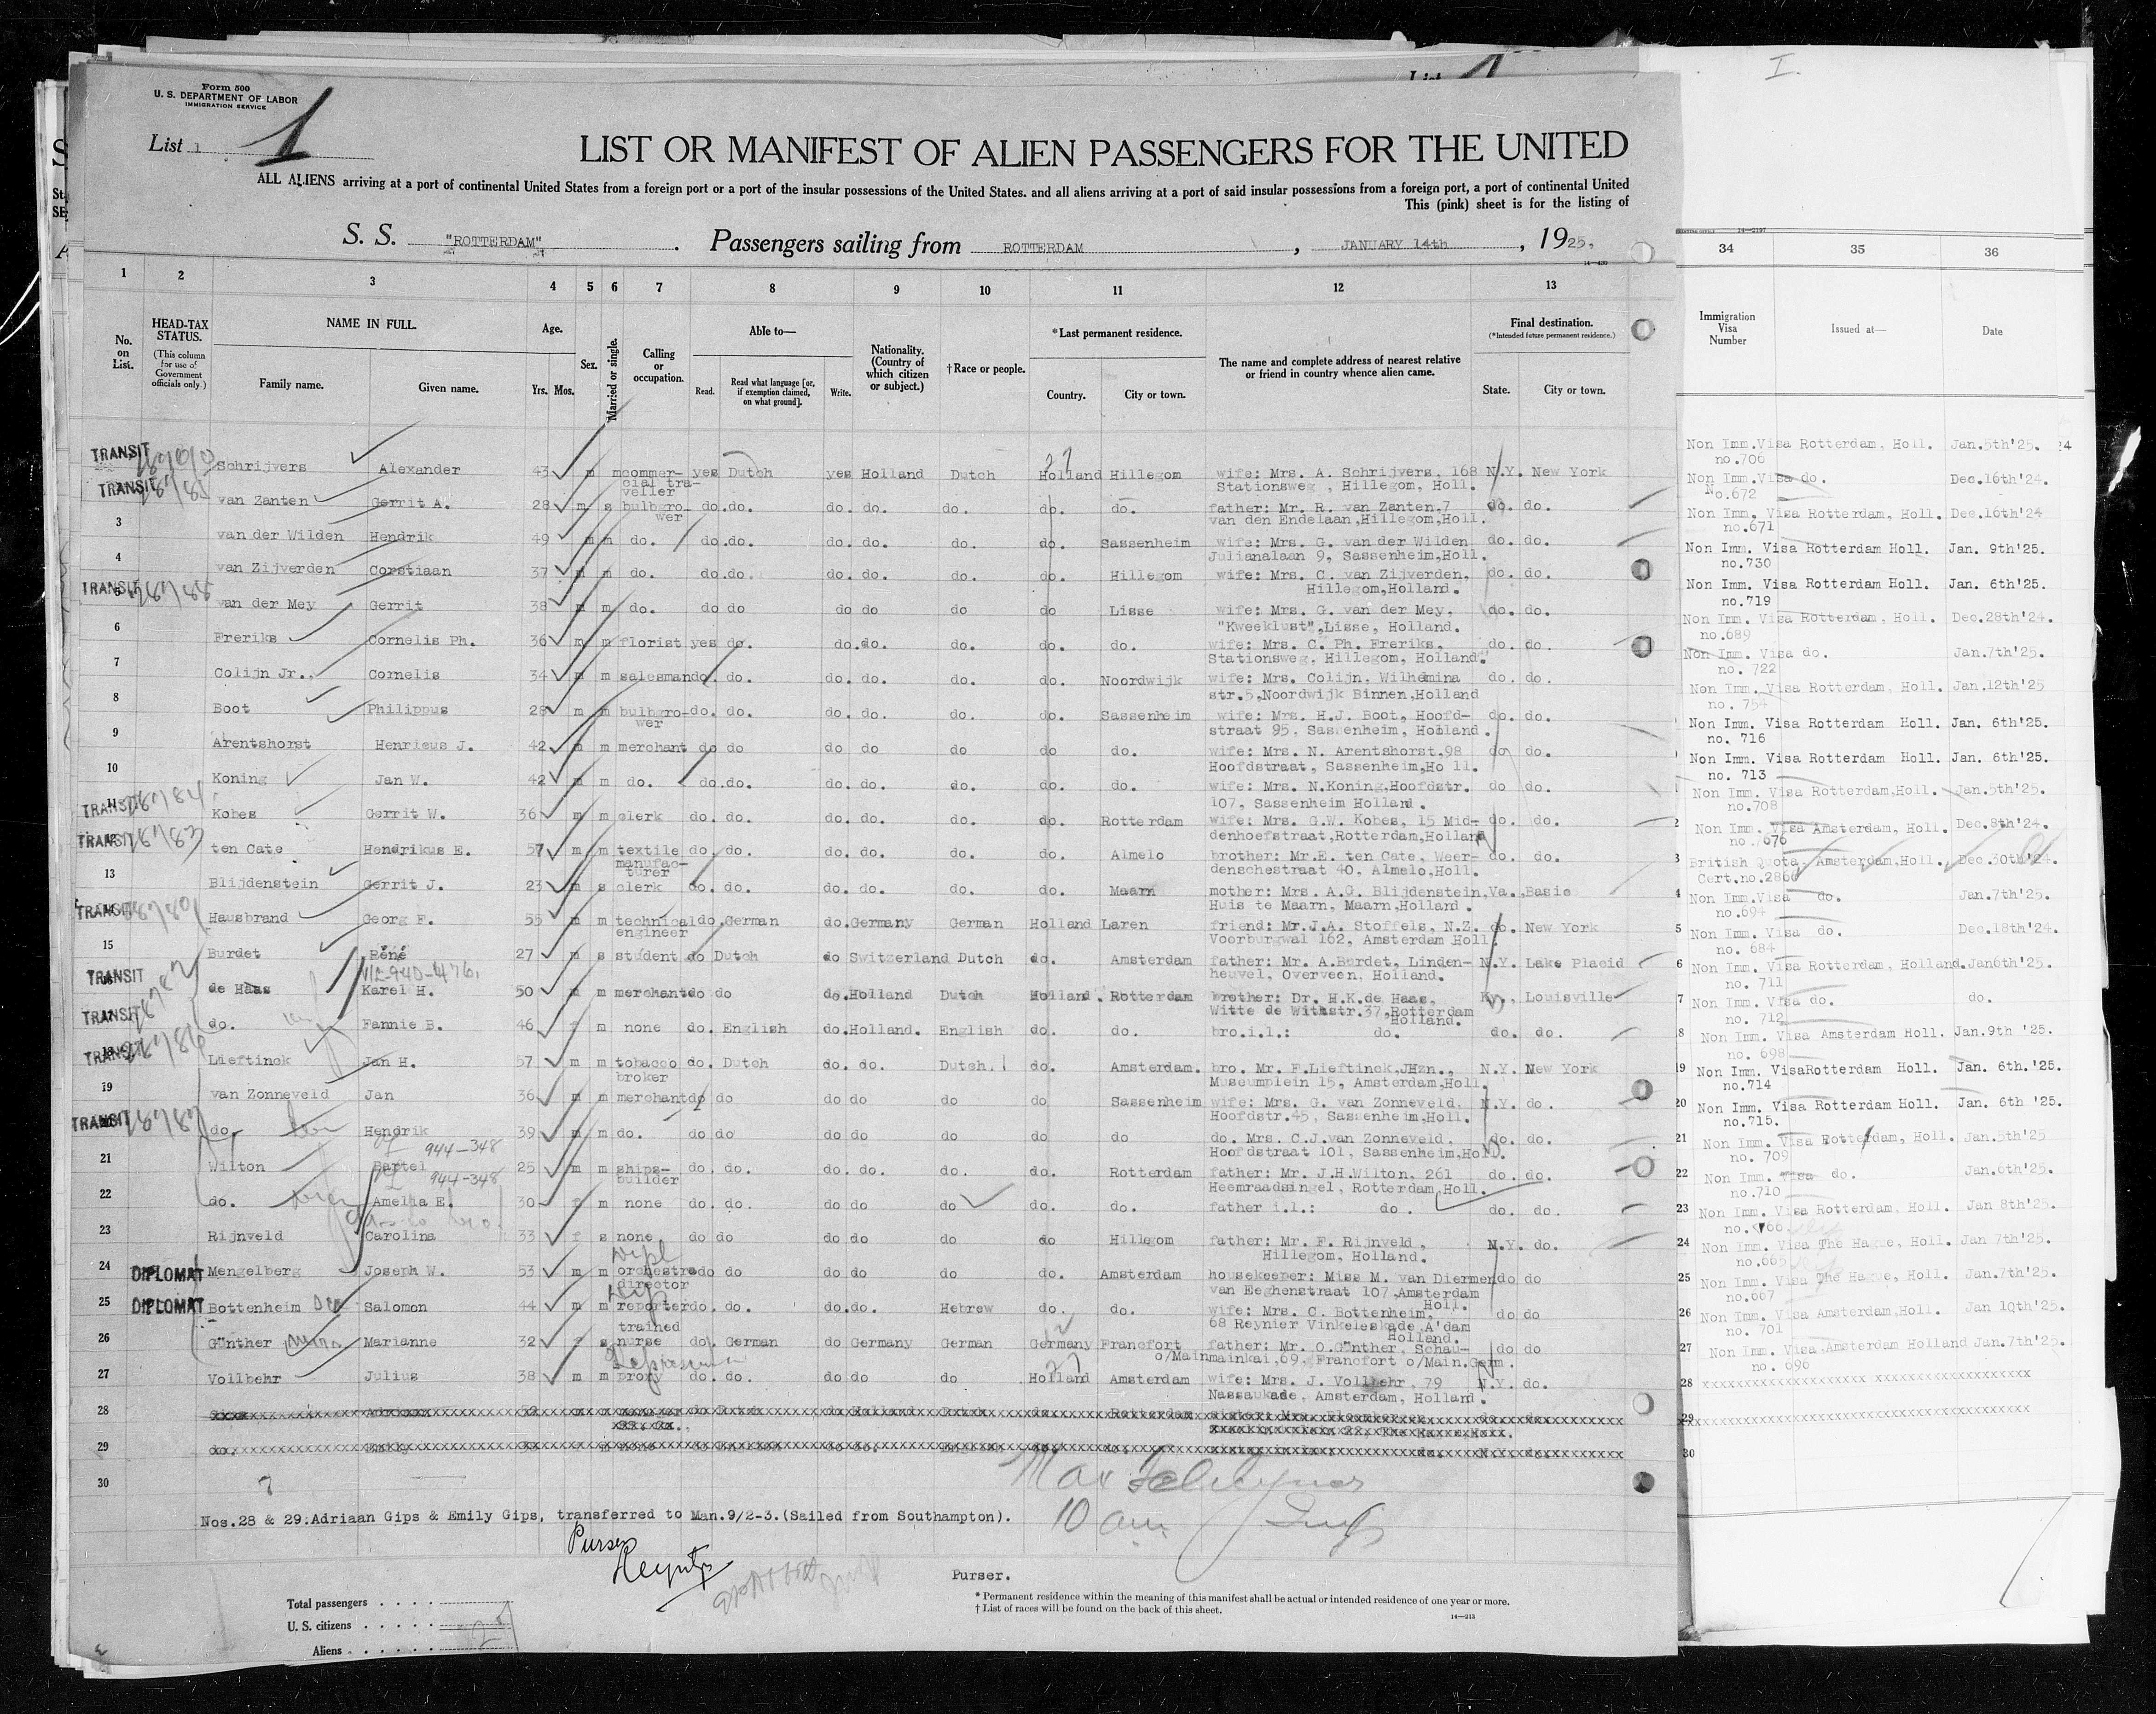 Form 500
U. S. DEPARTMENT OF LABOR
IMMIGRATION SERVICE
List 1
1
I.
LIST OR MANIFEST OF ALIEN PASSENGERS FOR THE UNITED
ALL ALIENS arriving at a port of continental United States from a foreign port or a port of the insular possessions of the United States. and all aliens arriving at a port of said insular possessions from a foreign port, a port of continental United
This (pink) sheet is for the listing of
S. S. "ROTTERDAM" . Passengers sailing from ROTTERDAM , JANUARY 14th , 1925.
1 2 3 4 5 6 7 8 9 10 11 12 13 34 35 36
No. on List.
HEAD-TAX STATUS.
(This column for use of Government officials only.)
NAME IN FULL.
Family name. Given name.
Age.
Yrs. Mos.
Sex.
Married or single.
Calling or occupation.
Able to—
Read. Read what language [or, if exemption claimed, on what ground]. Write.
Nationality. (Country of which citizen or subject.)
†Race or people.
*Last permanent residence.
Country. City or town.
The name and complete address of nearest relative or friend in country whence alien came.
Final destination.
(*Intended future permanent residence.)
State. City or town.
Immigration Visa Number
Issued at—
Date
TRANSIT Schrijvers Alexander 43 m m commercial traveller yes Dutch yes Holland Dutch Holland Hillegom wife: Mrs. A. Schrijvers, 168 N.Y. New York
Stationsweg , Hillegom, Holl.
Non Imm.Visa Rotterdam, Holl. Jan.5th'25.
no.706
TRANSIT van Zanten Gerrit A. 28 m s bulbgrower do. do. do. do. do. do. do. father: Mr. R. van Zanten,7 do. do.
van den Endelaan,Hillegom,Holl.
Non Imm.Visa do. Dec.16th'24.
No.672
3 van der Wilden Hendrik 49 m m do. do. do. do. do. do. do. Sassenheim wife: Mrs. G. van der Wilden do. do.
Julianalaan 9, Sassenheim,Holl.
Non Imm. Visa Rotterdam, Holl. Dec.16th'24
no.671
4 van Zijverden Corstiaan 37 m m do. do. do. do. do. do. do. Hillegom wife: Mrs. C. van Zijverden, do. do.
Hillegom,Holland.
Non Imm. Visa Rotterdam Holl. Jan. 9th'25.
no.730
TRANSIT 5 van der Mey Gerrit 38 m m do. do do do. do. do do Lisse wife: Mrs. G. van der Mey. do. do.
"Kweeklust",Lisse, Holland.
Non Imm. Visa Rotterdam Holl. Jan. 6th'25.
no.719
6 Freriks Cornelis Ph. 36 m m florist yes do. do. do. do. do. do. wife: Mrs. C. Ph. Freriks, do. do.
Stationsweg, Hillegom, Holland.
Non Imm. Visa Rotterdam, Holl. Dec.28th'24.
no.689
7 Colijn Jr., Cornelis 34 m m salesman do. do. do. do. do. do. Noordwijk wife: Mrs. Colijn, Wilhelmina do. do.
str.5,Noordwijk Binnen,Holland
Non Imm. Visa do. Jan.7th'25.
no. 722
8 Boot Philippus 28 m m bulbgrower do. do. do. do. do. do. Sassenheim wife: Mrs. H.J. Boot, Hoofd- do. do.
straat 95, Sassenheim, Holland.
Non Imm. Visa Rotterdam, Holl. Jan.12th'25
no. 754
9 Arentshorst Henricus J. 42 m m merchant do do do do do do do. wife: Mrs. N. Arentshorst.98 do do.
Hoofdstraat, Sassenheim,Holl.
Non Imm. Visa Rotterdam Holl. Jan. 6th'25.
no. 716
10 Koning Jan W. 42 m m do. do. do. do. do. do. do. do. wife: Mrs. N.Koning,Hoofdstr. do do.
107, Sassenheim Holland.
Non Imm. Visa Rotterdam Holl. Jan. 6th'25.
no. 713
TRANSIT 11 Kobes Gerrit W. 36 m m clerk do. do. do. do. do. do. Rotterdam wife: Mrs. G.W. Kobes, 15 Mid- do. do.
denhoefstraat,Rotterdam,Holland
Non Imm. Visa Rotterdam,Holl. Jan.5th'25.
no.708
TRANSIT 12 ten Cate Hendrikus E. 57 m m textile manufacturer do. do. do. do. do. do. Almelo brother: Mr.E. ten Cate, Weer- do. do.
denschestraat 40, Almelo,Holl.
Non Imm. Visa Amsterdam, Holl. Dec.8th'24.
no.7676
13 Blijdenstein Gerrit J. 23 m s clerk do. do. do. do. do. do. Maarn mother: Mrs. A.G. Blijdenstein,Va. Basic
Huis te Maarn, Maarn,Holland.
British Quota Amsterdam,Holl., Dec.30th'24.
Cert.no.2866
TRANSIT 14 Hausbrand Georg F. 55 m m technical engineer do. German do. Germany German Holland Laren friend: Mr.J.A. Stoffels, N.Z. do. New York
Voorburgwal 162, Amsterdam Holl.
Non Imm.Visa do. Jan.7th'25.
no.694
15 Burdet Réné 27 m s student do Dutch do Switzerland Dutch do. Amsterdam father: Mr. A.Burdet, Linden- N.Y. Lake Placid
heuvel, Overveen, Holland.
Non Imm. Visa do. Dec.18th'24.
no. 684
TRANSIT 16 de Haas Karel H. 50 m m merchant do do do. Holland Dutch Holland. Rotterdam brother: Dr. H.K.de Haas, Ky., Louisville
Witte de Withstr.37,Rotterdam Holland.
Non Imm. Visa Rotterdam, Holland. Jan6th'25.
no. 711
TRANSIT 17 do. Fannie B. 46 f m none do. English do. Holland. English do. do. bro.i.l.: do. do. do.
Non Imm. Visa do. do.
no. 712
TRANSIT 18 Lieftinck Jan H. 57 m m tobacco broker do. Dutch do. do. Dutch. do. Amsterdam. bro. Mr. F.Lieftinck,JHzn., N.Y. New York
Museumplein 15, Amsterdam,Holl.
Non Imm. Visa Amsterdam Holl. Jan.9th '25.
no. 698
19 van Zonneveld Jan 36 m m merchant do do do do do do Sassenheim wife: Mrs. G. van Zonneveld, N.Y. do.
Hoofdstr.45, Sassenheim,Holl.
Non Imm. VisaRotterdam Holl. Jan. 6th.'25.
no.714
TRANSIT 20 do. Hendrik 39 m m do. do do do do do do do do. Mrs. C.J.van Zonneveld, do. do.
Hoofdstraat 101, Sassenheim,Holl.
Non Imm. Visa Rotterdam Holl. Jan. 6th '25.
no.715.
944-348
21 Wilton Bartel 25 m m ships-builder do. do. do. do. do do. Rotterdam father: Mr. J.H.Wilton, 261 do. do.
Heemraadsingel, Rotterdam,Holl.
Non Imm. Visa Rotterdam, Holl. Jan.5th'25
no. 709
944-348
22 do. Amelia E. 30 f m none do. do. do do. do do. do. father i.l.: do. do. do.
Non Imm. Visa do. Jan.6th'25.
no.710
23 Rijnveld Carolina 33 f s none do do do do do do Hillegom father: Mr. F. Rijnveld, N.Y. do.
Hillegom, Holland.
Non Imm. Visa Rotterdam, Holl Jan 8th'25.
24 DIPLOMAT Mengelberg Joseph W. 53 m m orchestra director do do do do do do. Amsterdam housekeeper: Miss M. van Diermen do do
van Eeghenstraat 107,Amsterdam Holl.
Non Imm. Visa The Hague, Holl. Jan 7th'25.
no.665
25 DIPLOMAT Bottenheim Salomon 44 m m reporter do. do. do. do. Hebrew do. do. wife: Mrs. C. Bottenheim, do do
68 Reynier Vinkeleskade A'dam Holland.
Non Imm. Visa The Hague, Holl. Jan.7th'25.
no.667
26 Günther Marianne 32 f s trained nurse do. German do Germany German Germany Francfort o/Main father: Mr. O.Günther, Schau- do do
mainkai,69, Francfort o/Main.Germ.
Non Imm. Visa Amsterdam,Holl. Jan 10th'25.
no. 701
27 Vollbehr Julius 38 m m proxy do. do. do do do Holland Amsterdam wife: Mrs. J. Vollbehr, 79 N.Y. do.
Nassaukade, Amsterdam, Holland.
Non Imm. Visa Amsterdam Holland Jan.7th'25.
no. 696
28
29
30
Nos.28 & 29:Adriaan Gips & Emily Gips, transferred to Man.9/2-3.(Sailed from Southampton).
10 am
Purser
Purser.
Total passengers
U. S. citizens
Aliens
* Permanent residence within the meaning of this manifest shall be actual or intended residence of one year or more.
† List of races will be found on the back of this sheet.
14—213